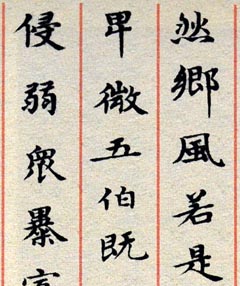 然鄉風若是
卑微五伯既
侵弱眾暴